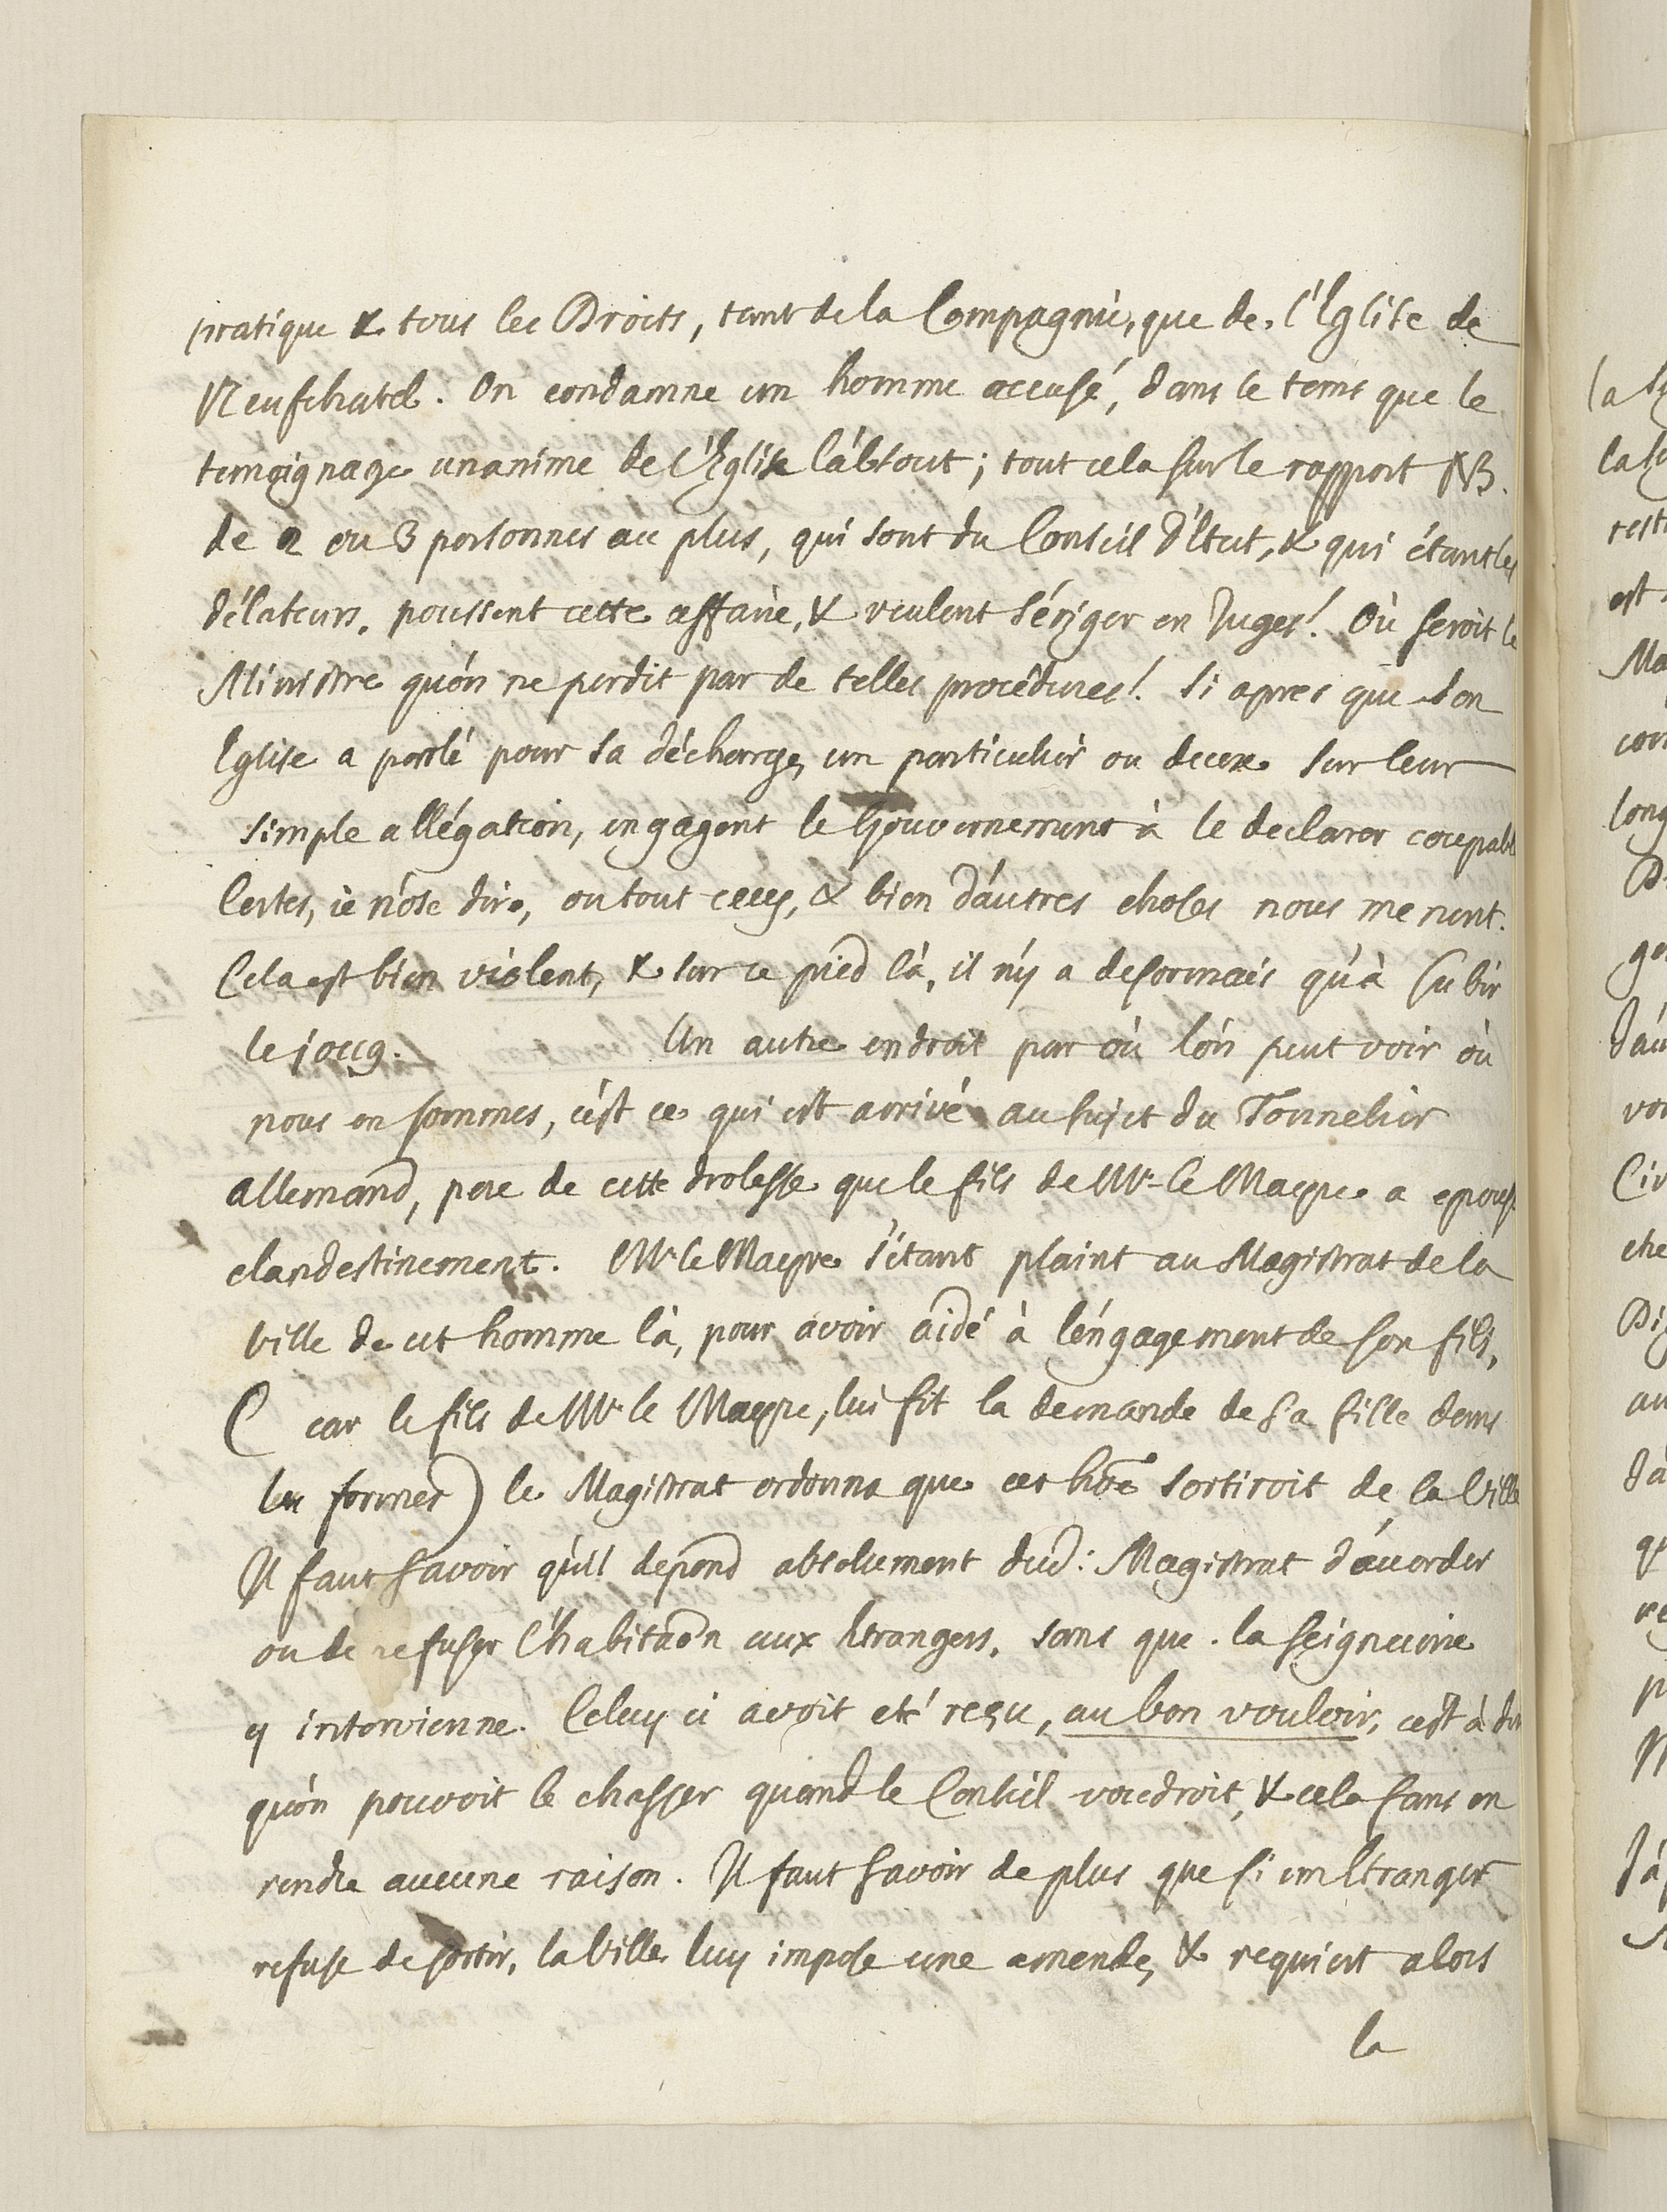 pratique & tous les Droits, tant de la Compagnie, que de l'Eglise de
Neufchatel. On condamne un homme accusé, dans le tems que le
temoignage unanime de l'Eglise l'absout; tout cela sur le rapport NB.
de 2 ou 3 personnes au plus, qui sont du Conseil d'Etat, & qui étant les
délateurs, poussent cette affaire, & veulent s'ériger en Juges! Où seroit le
Ministre qu'on ne perdit par de telles procédures! Si apres que son
Eglise a parlé pour sa décharge, un particulier ou deux sur leur
simple allégation, engagent le Gouvernement à le declarer coupable
Certes, je n'ose dire, ou tout cecy, & bien d'autres choses nous menent.
Cela est bien violent, & sur ce pied là, il n'y a desormais qu'à subir
le joug. Un autre endroit par où l'on peut voir où
nous en sommes, c'est ce qui est arrivé au sujet du Tonnelier
allemand, pere de cette drolesse que le fils de Mr le Mayre a epousé
clandestinement. Mr le Mayre s'étant plaint au Magistrat de la
Ville de cet homme là, pour avoir aidé à l'engagement de son fils,
( car le fils de Mr le Mayre, lui fit la demande de sa fille dans
les formes) le Magistrat ordonna que cet hoē sortiroit de la Ville
Il faut savoir qu'il depend absolument dud: Magistrat d'accorder
ou de refuser l'habitaõn aux Etrangers, sans que la seigneurie
y intervienne. Celuy ci avoit eté reçu, au bon vouloir, c'est à dire
qu'on pouvoit le chasser quand le Conseil voudroit, & cela sans en
rendre aucune raison. Il faut savoir de plus que si un Etranger
refuse de sortir, la Ville luy impose une amende, & requiert alors
la